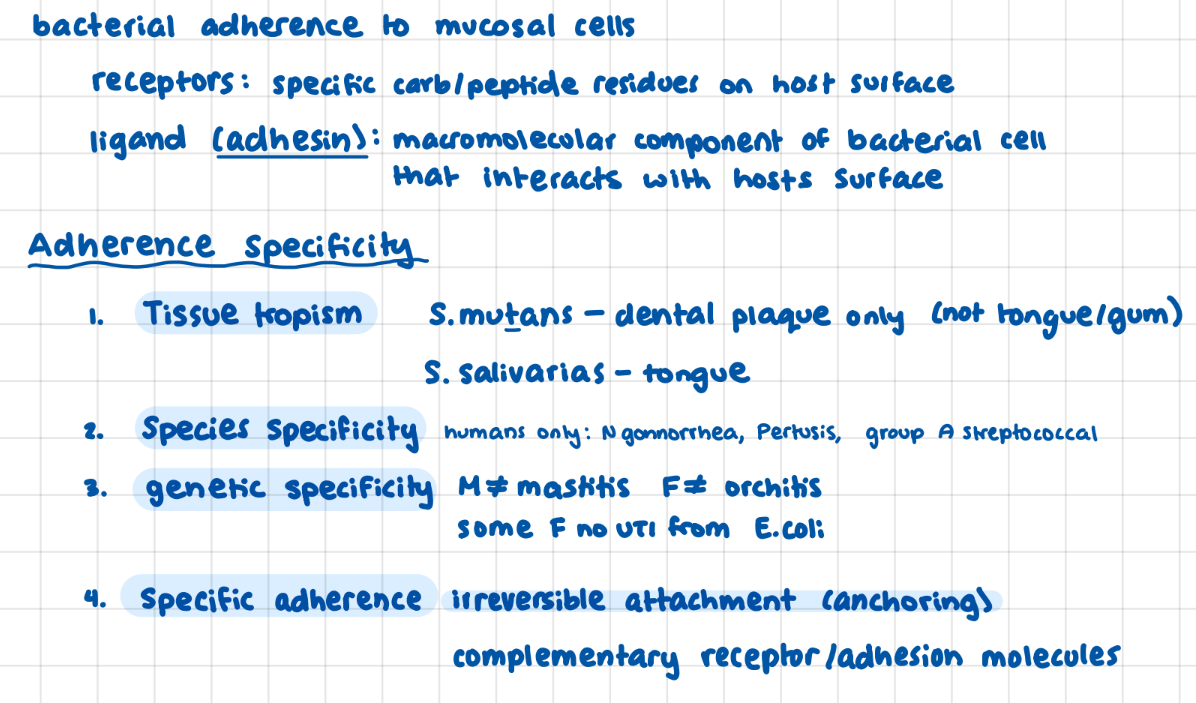 bacterial adherence to mucosal cells
receptors: specific carb/peptide residues on host surface
ligand (adhesin): macromolecular component of bacterial cell
that interacts with hosts surface
Adherence specificity
1. Tissue tropism S.mutans – dental plaque only (not tongue/gum)
S. salivarias – tongue
2. Species specificity humans only: N gonnorrhea, Pertusis, group A streptococcal
3. genetic specificity M ≠ mastitis F ≠ orchitis
some F no UTI from E.coli
4. Specific adherence irreversible attachment (anchoring)
complementary receptor/adhesion molecules